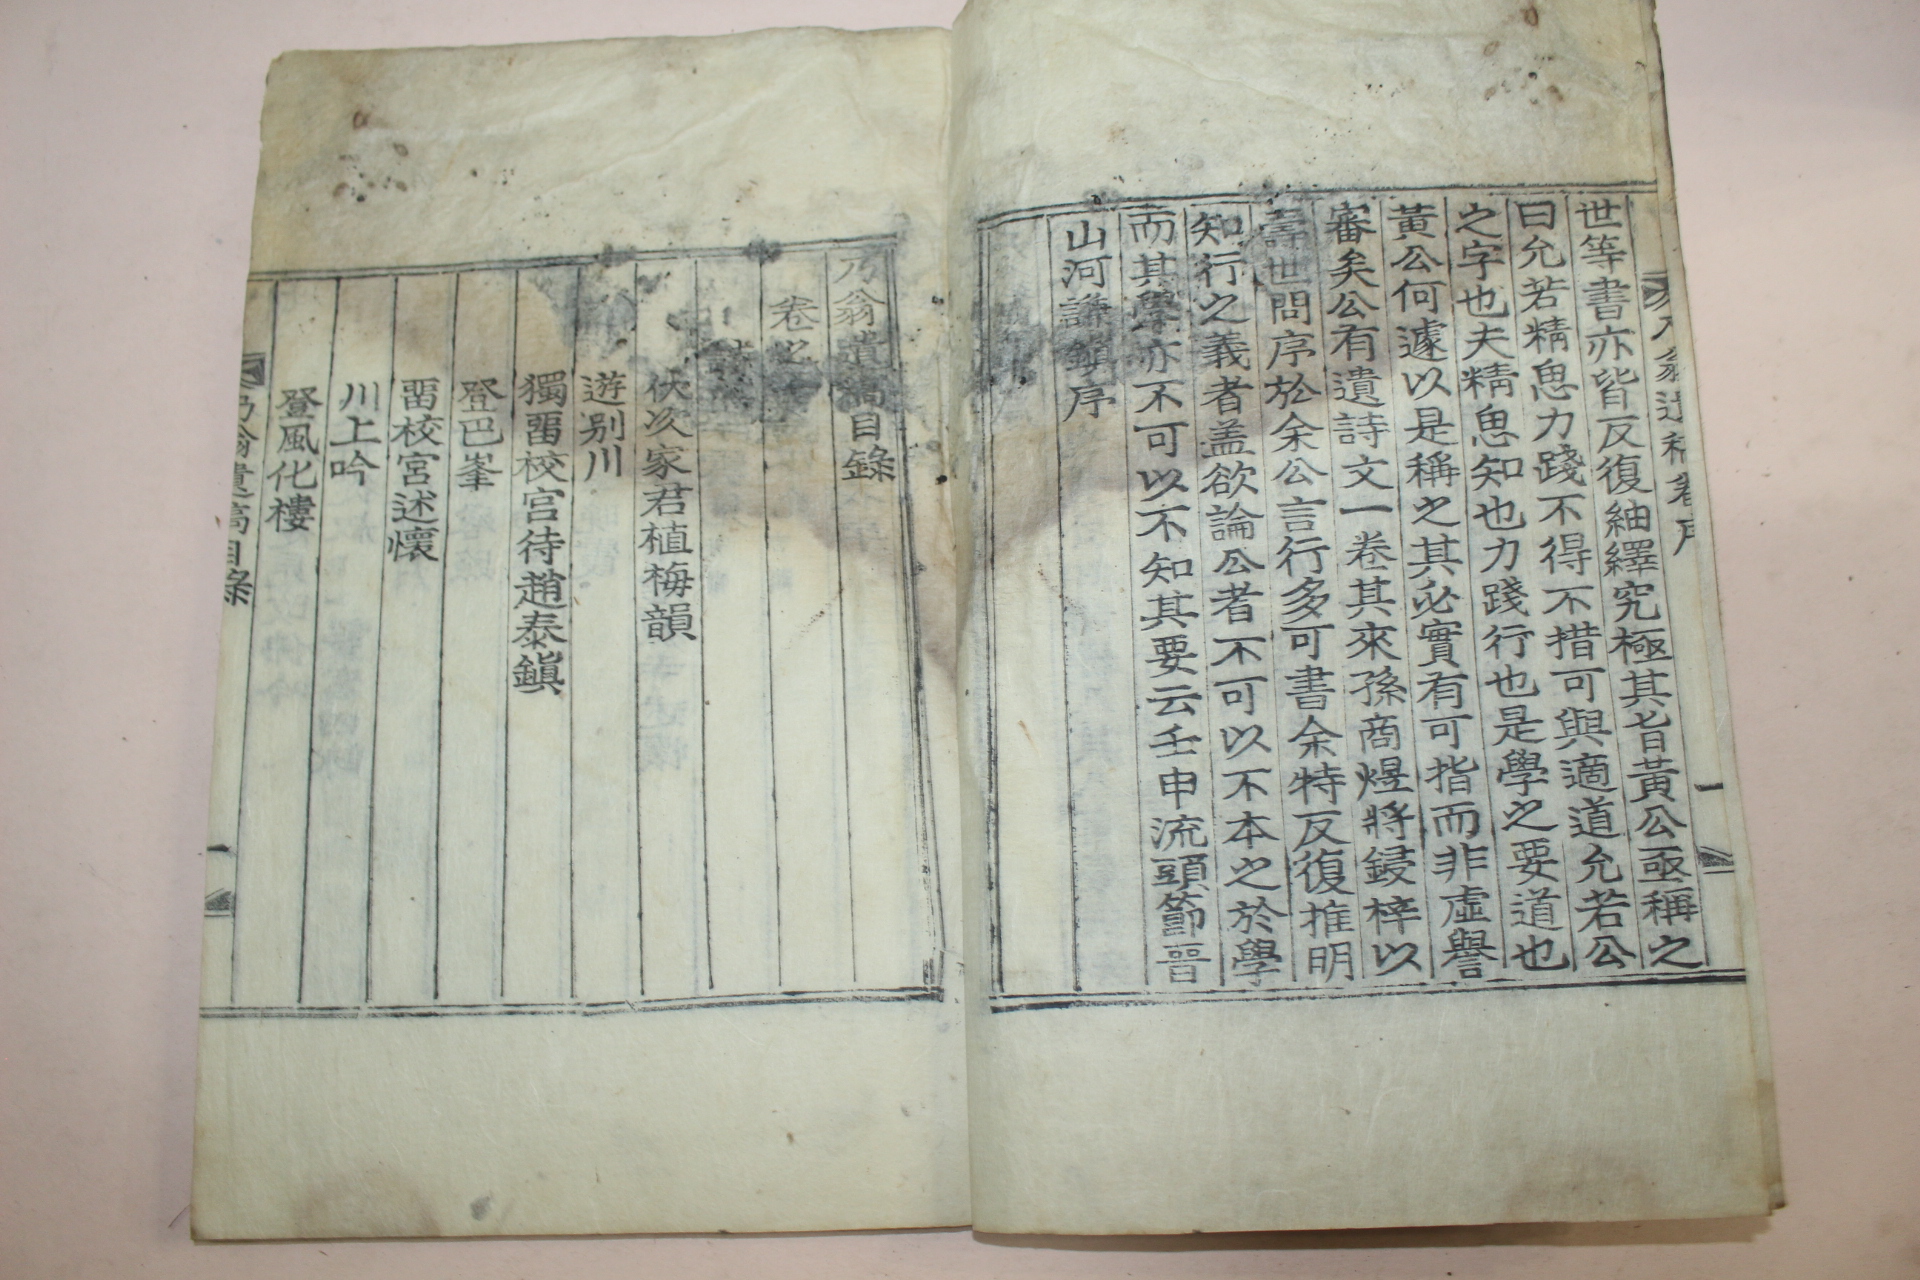 世等書亦皆反復紬繹究極其旨黃公亟稱之
曰允若精思力踐不得不措可與適道允若公
之字也夫精思知也力踐行也是學之要道也
黃公何遽以是稱之其必實有可指而非虛譽
審矣公有遺詩文一卷其來孫商煜將鋟梓以
壽世問序於余公言行多可書余特反復推明
知行之義者盖欲論公者不可以不本之於學
而其學亦不可以不知其要云壬申流頭節晋
山河謙鎭序
乃翁遺稿目錄
卷之
詩
伏次家君植梅韻
遊別川
獨留校宮待趙泰鎭
登巴峯
留校宮述懷
川上吟
登風化樓
乃翁遺稿目錄 一